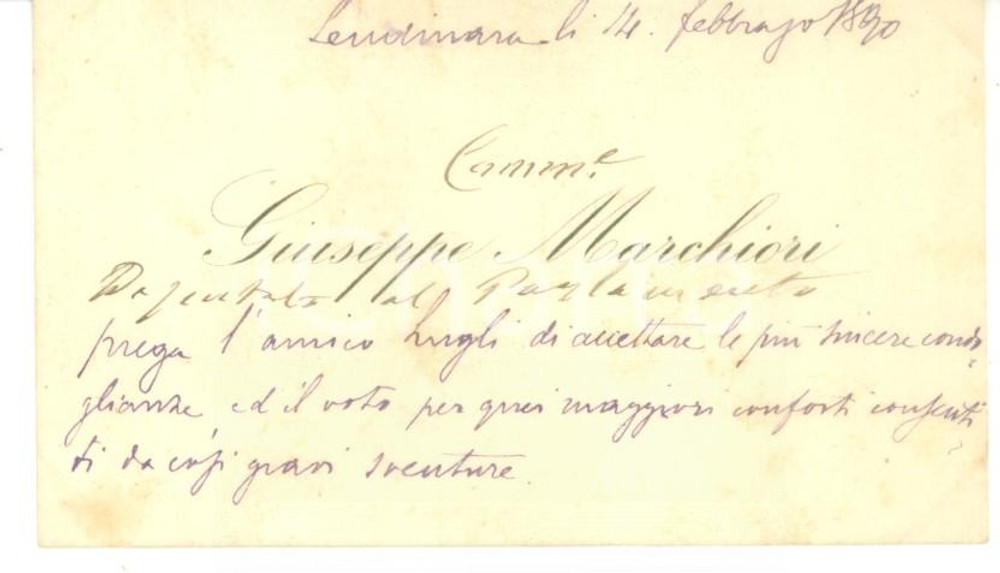 Lendinara li 14. febbrajo 1890
Comm.e
Giuseppe Marchiori
Deputato al Parlamento
prega l'amico Lugli di accettare le più sincere condo=
glianze, ed il voto per quei maggiori conforti consenti=
ti da così gravi sventure.